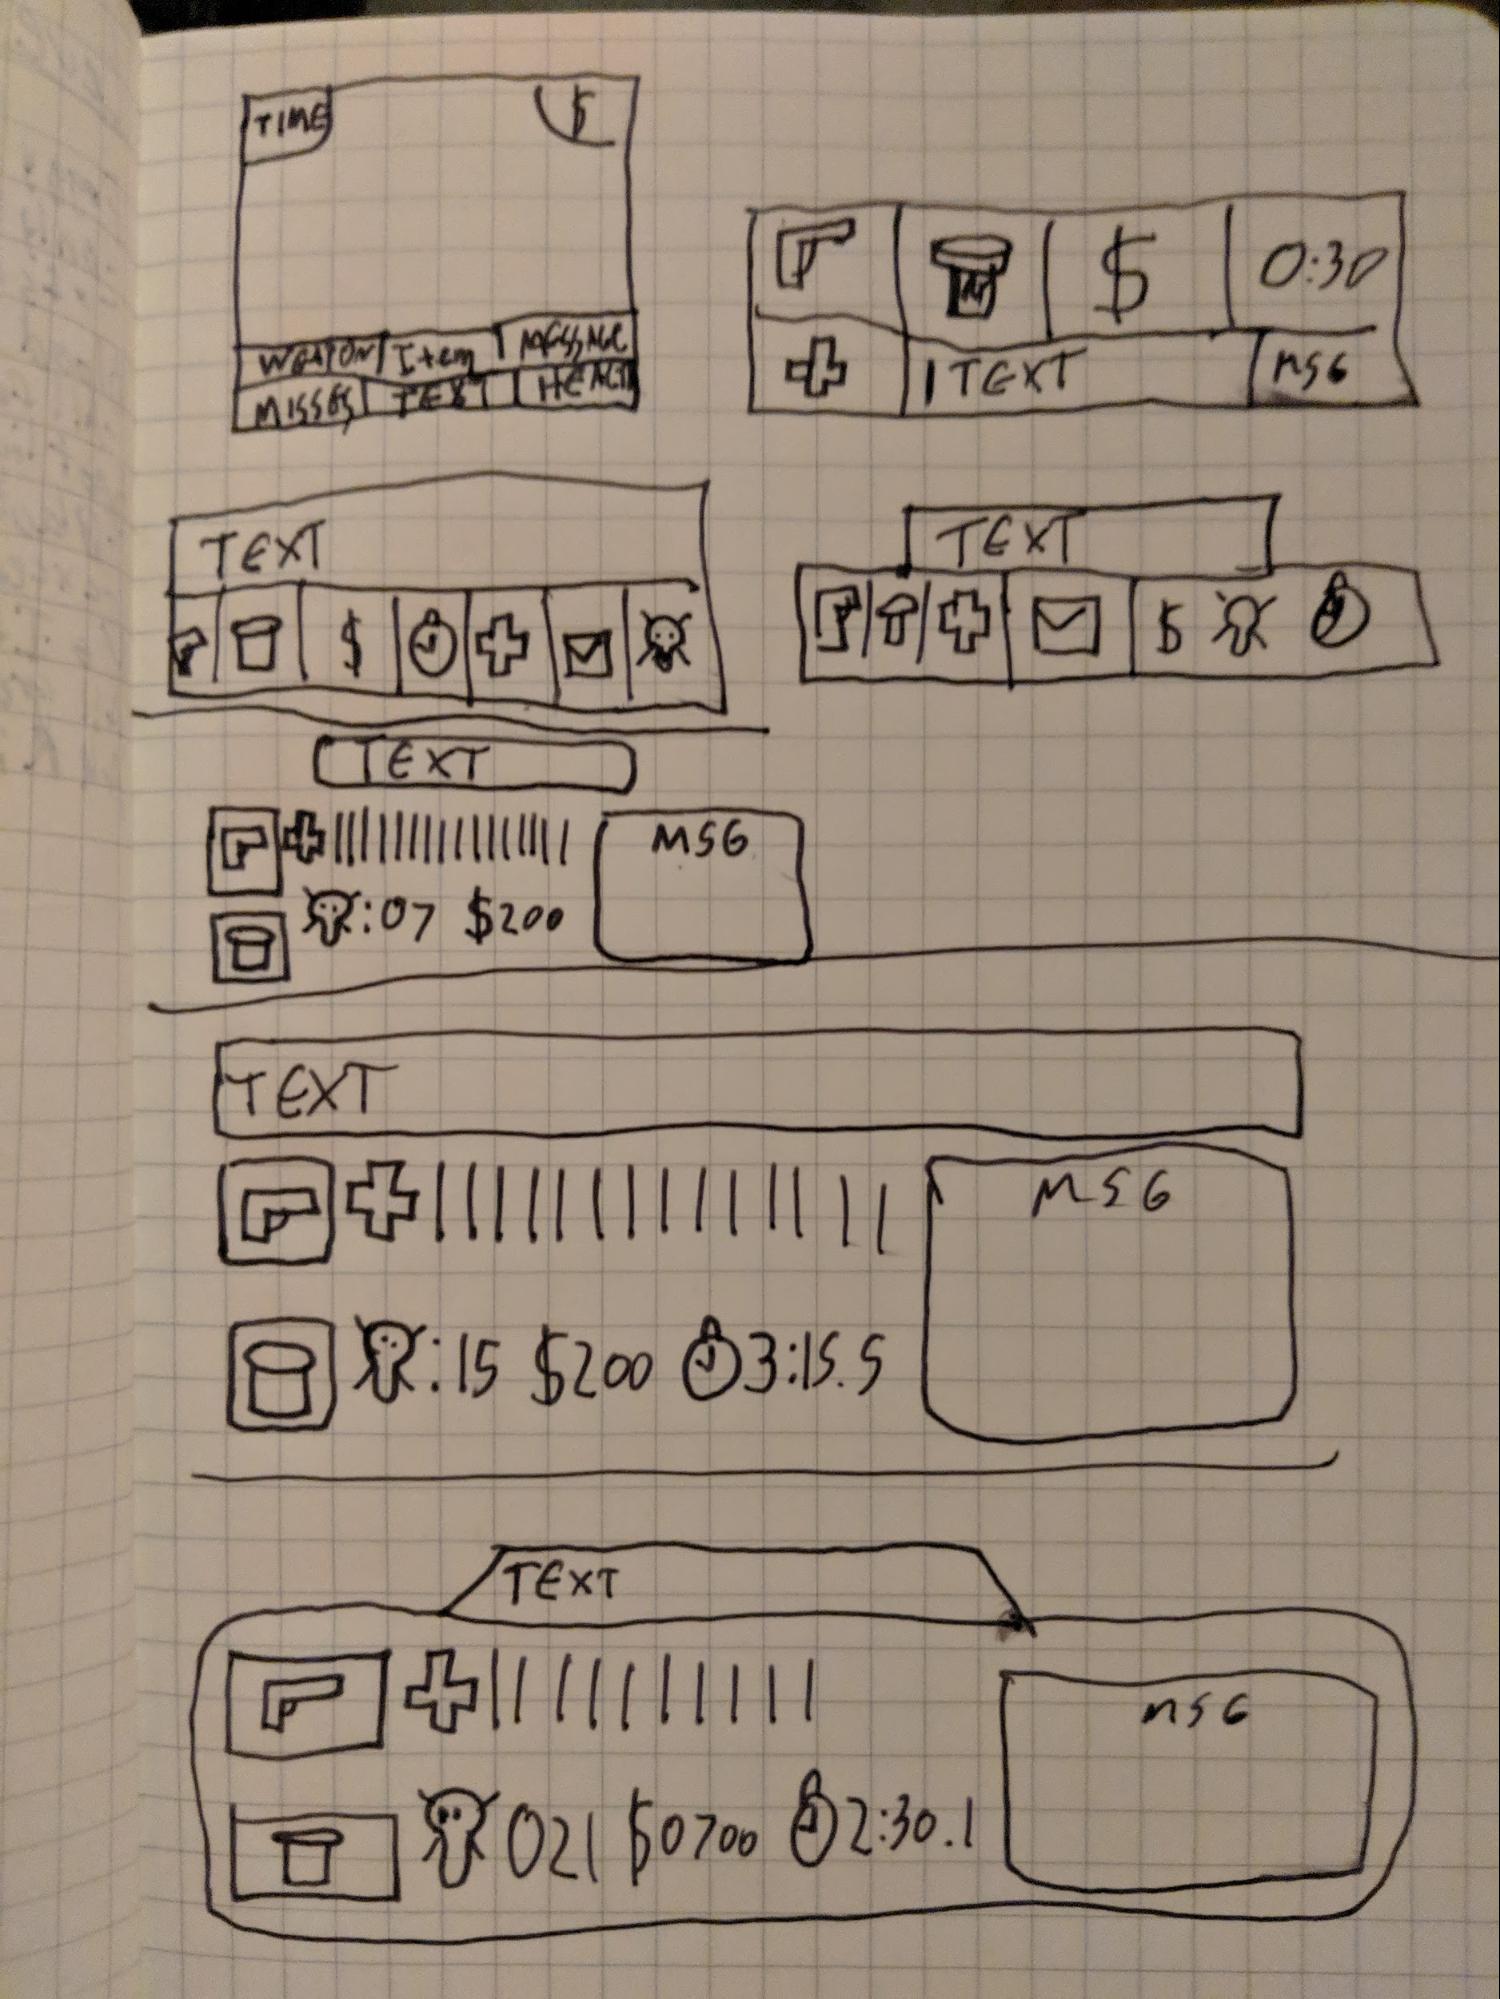 TIME $
WEAPON Item MESSAGE
MISSES TEXT HEALTH
$ 0:30
TEXT MSG
TEXT
$
TEXT
$
TEXT
MSG
:07 $200
TEXT
MSG
:15 $200 3:15.5
TEXT
MSG
021 $0700 2:30.1